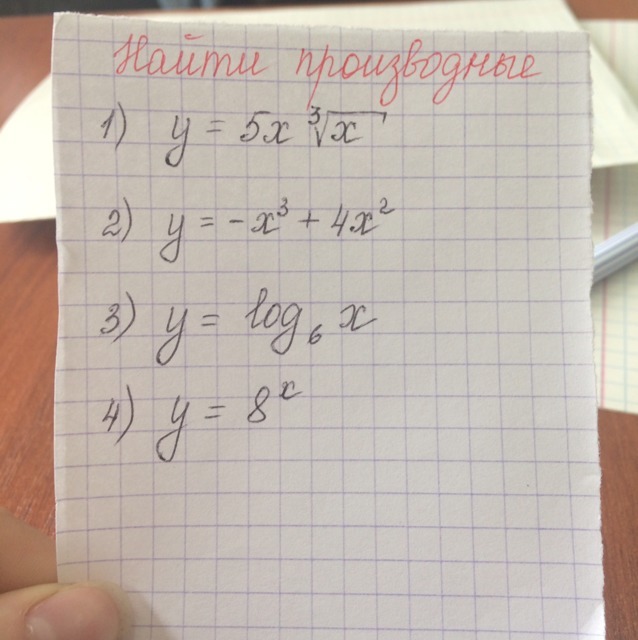 Найти производные
1) y = 5x ∛x
2) y = -x³ + 4x²
3) y = log₆ x
4) y = 8ˣ